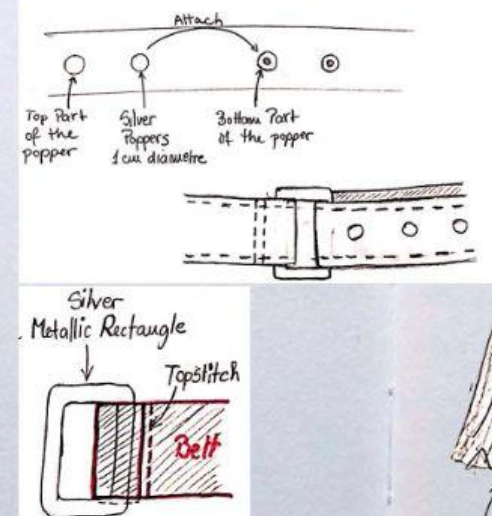 Attach
Top Part
of the
popper
Silver
Poppers
1cm diametre
Bottom Part
of the popper
Silver
Metallic Rectangle
Topstitch
Belt